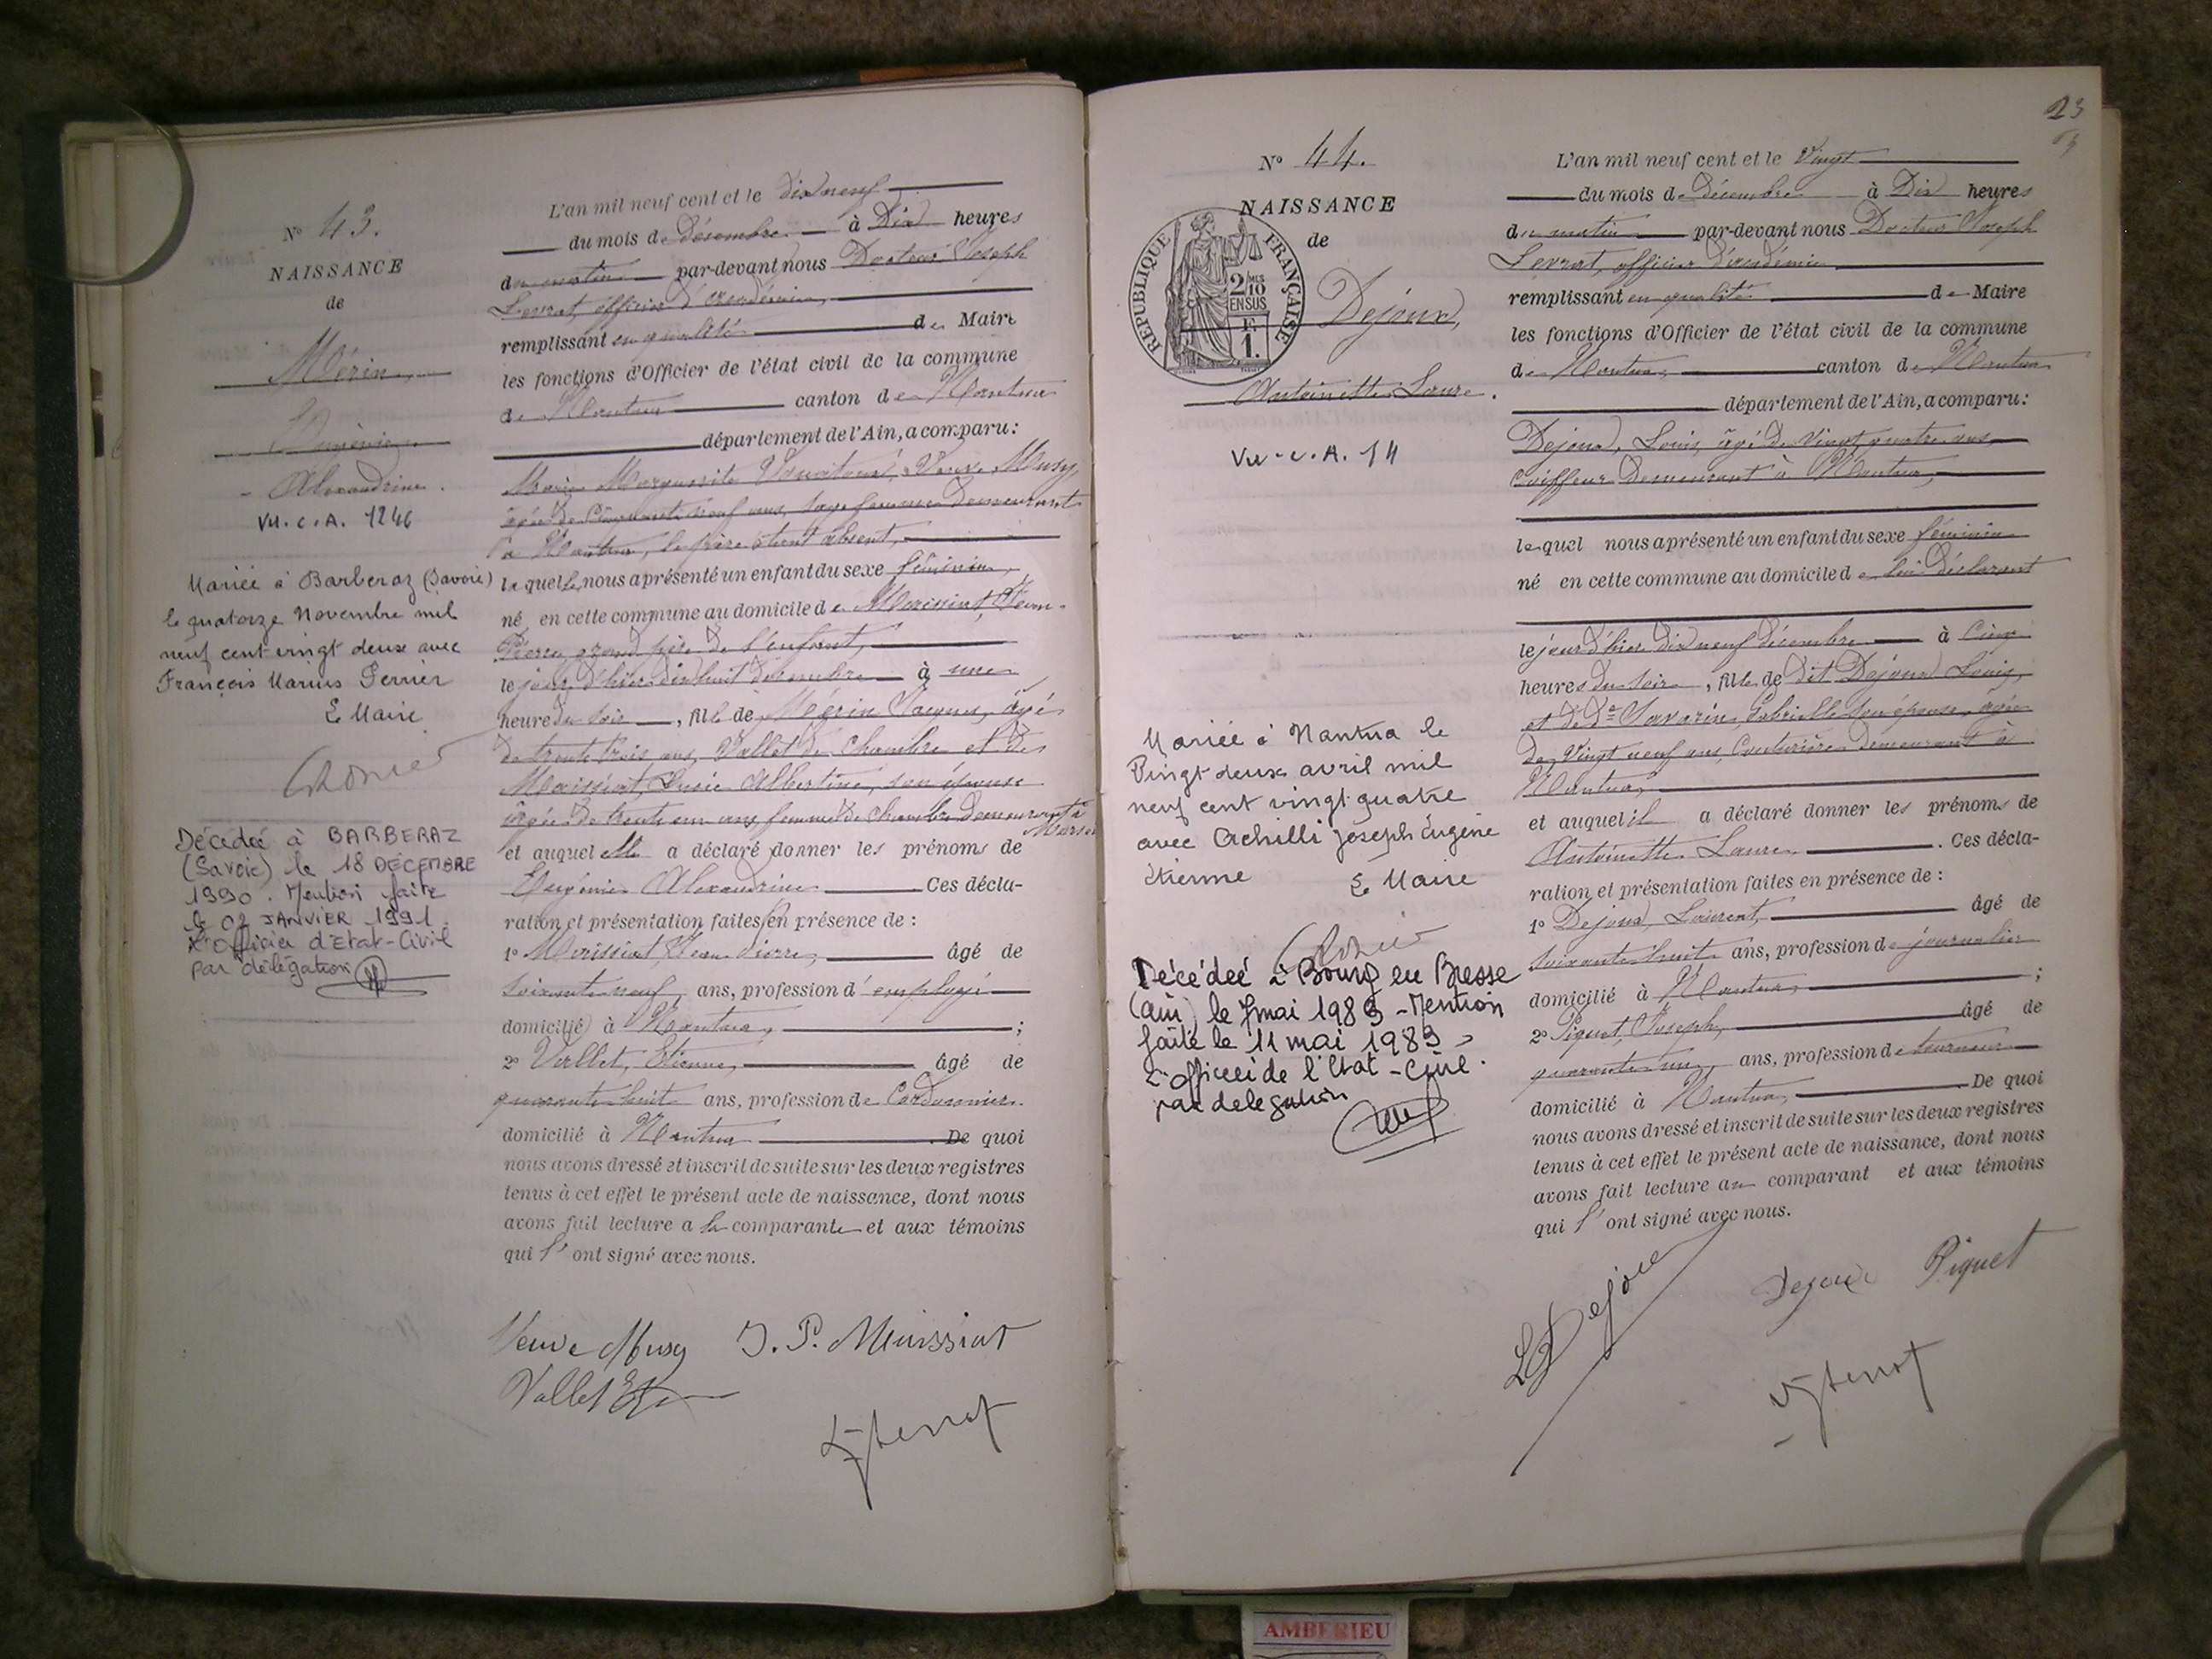 Nº 43.
NAISSANCE
de
Mérin,
Eugénie
Alexandrine.
Vu. c. A. 1246
Mariée à Barberaz (Savoie)
le quatorze Novembre mil
neuf cent vingt deux avec
François Marius Perrier
Le Maire
Décédée à BARBERAZ
(Savoie) le 18 DÉCEMBRE
1990. Mention faite
le 02 JANVIER 1991.
L'officier d'Etat-Civil
par délégation
L'an mil neuf cent et le dix neuf
du mois de décembre à Dix heures
du matin par-devant nous Docteur Joseph
Levrat, officier d'académie,
remplissant en qualité de Maire
les fonctions d'Officier de l'état civil de la commune
de Nantua canton de Nantua
département de l'Ain, a comparu:
Marie Marguerite Veuve Musy,
âgée de Cinquante neuf ans, sage femme demeurant
à Nantua, le père étant absent,
laquelle nous a présenté un enfant du sexe féminin,
né en cette commune au domicile de Maissiat, Jean-
Pierre, grand père de l'enfant,
le jour d'hier dix huit décembre à une
heure du soir, fille de Mérin Jacques, âgé
de trente trois ans, Vallet de chambre et de
Maissiat, Lucie Albertine, son épouse
âgée de trente un ans femme de chambre demeurant à
et auquel elle a déclaré donner les prénoms de
Eugénie Alexandrine Ces décla-
ration et présentation faites en présence de :
1º Maissiat, Jean Pierre, âgé de
soixante neuf ans, profession d'employé
domicilié à Nantua, ;
2º Vallet, Etienne, âgé de
quarante huit ans, profession de Cordonnier.
domicilié à Nantua . De quoi
nous avons dressé et inscrit de suite sur les deux registres
tenus à cet effet le présent acte de naissance, dont nous
avons fait lecture a la comparante et aux témoins
qui l'ont signé avec nous.
Veuve Musy J. P. Maissiat
Vallet Et
23
Nº 44.
NAISSANCE
de
RÉPUBLIQUE FRANÇAISE
2/10 MES
EN SUS
F.
1.
Dejoux,
Antoinette Laure.
Vu. c. A. 14
Mariée à Nantua le
Vingt deux avril mil
neuf cent vingt quatre
avec Achilli Joseph Eugène
Etienne
Le Maire
Décédée à Bourg en Bresse
(Ain) le 7 mai 1989 - Mention
faite le 11 mai 1989
L'officier de l'Etat-Civil.
par délégation
L'an mil neuf cent et le Vingt
du mois de décembre à Dix heures
du matin par-devant nous Docteur Joseph
Levrat, officier d'académie
remplissant en qualité de Maire
les fonctions d'Officier de l'état civil de la commune
de Nantua, canton de Nantua
département de l'Ain, a comparu:
Dejoux, Louis, âgé de Vingt quatre ans,
Coiffeur demeurant à Nantua,
lequel nous a présenté un enfant du sexe féminin
né en cette commune au domicile de lui déclarant
le jour d'hier dix neuf décembre à Cinq
heures du soir, fille de dit Dejoux Louis,
et de de Savarin, Gabrielle son épouse, âgée
de Vingt neuf ans, Couturière demeurant à
Nantua,
et auquel il a déclaré donner les prénoms de
Antoinette Laure, . Ces décla-
ration et présentation faites en présence de :
1º Dejoux, Laurent, âgé de
soixante huit ans, profession de journalier
domicilié à Nantua, ;
2º Piquet, Joseph, âgé de
quarante cinq ans, profession de tourneur
domicilié à Nantua, De quoi
nous avons dressé et inscrit de suite sur les deux registres
tenus à cet effet le présent acte de naissance, dont nous
avons fait lecture au comparant et aux témoins
qui l'ont signé avec nous.
L Dejoux
Dejoux Piquet
AMBERIEU